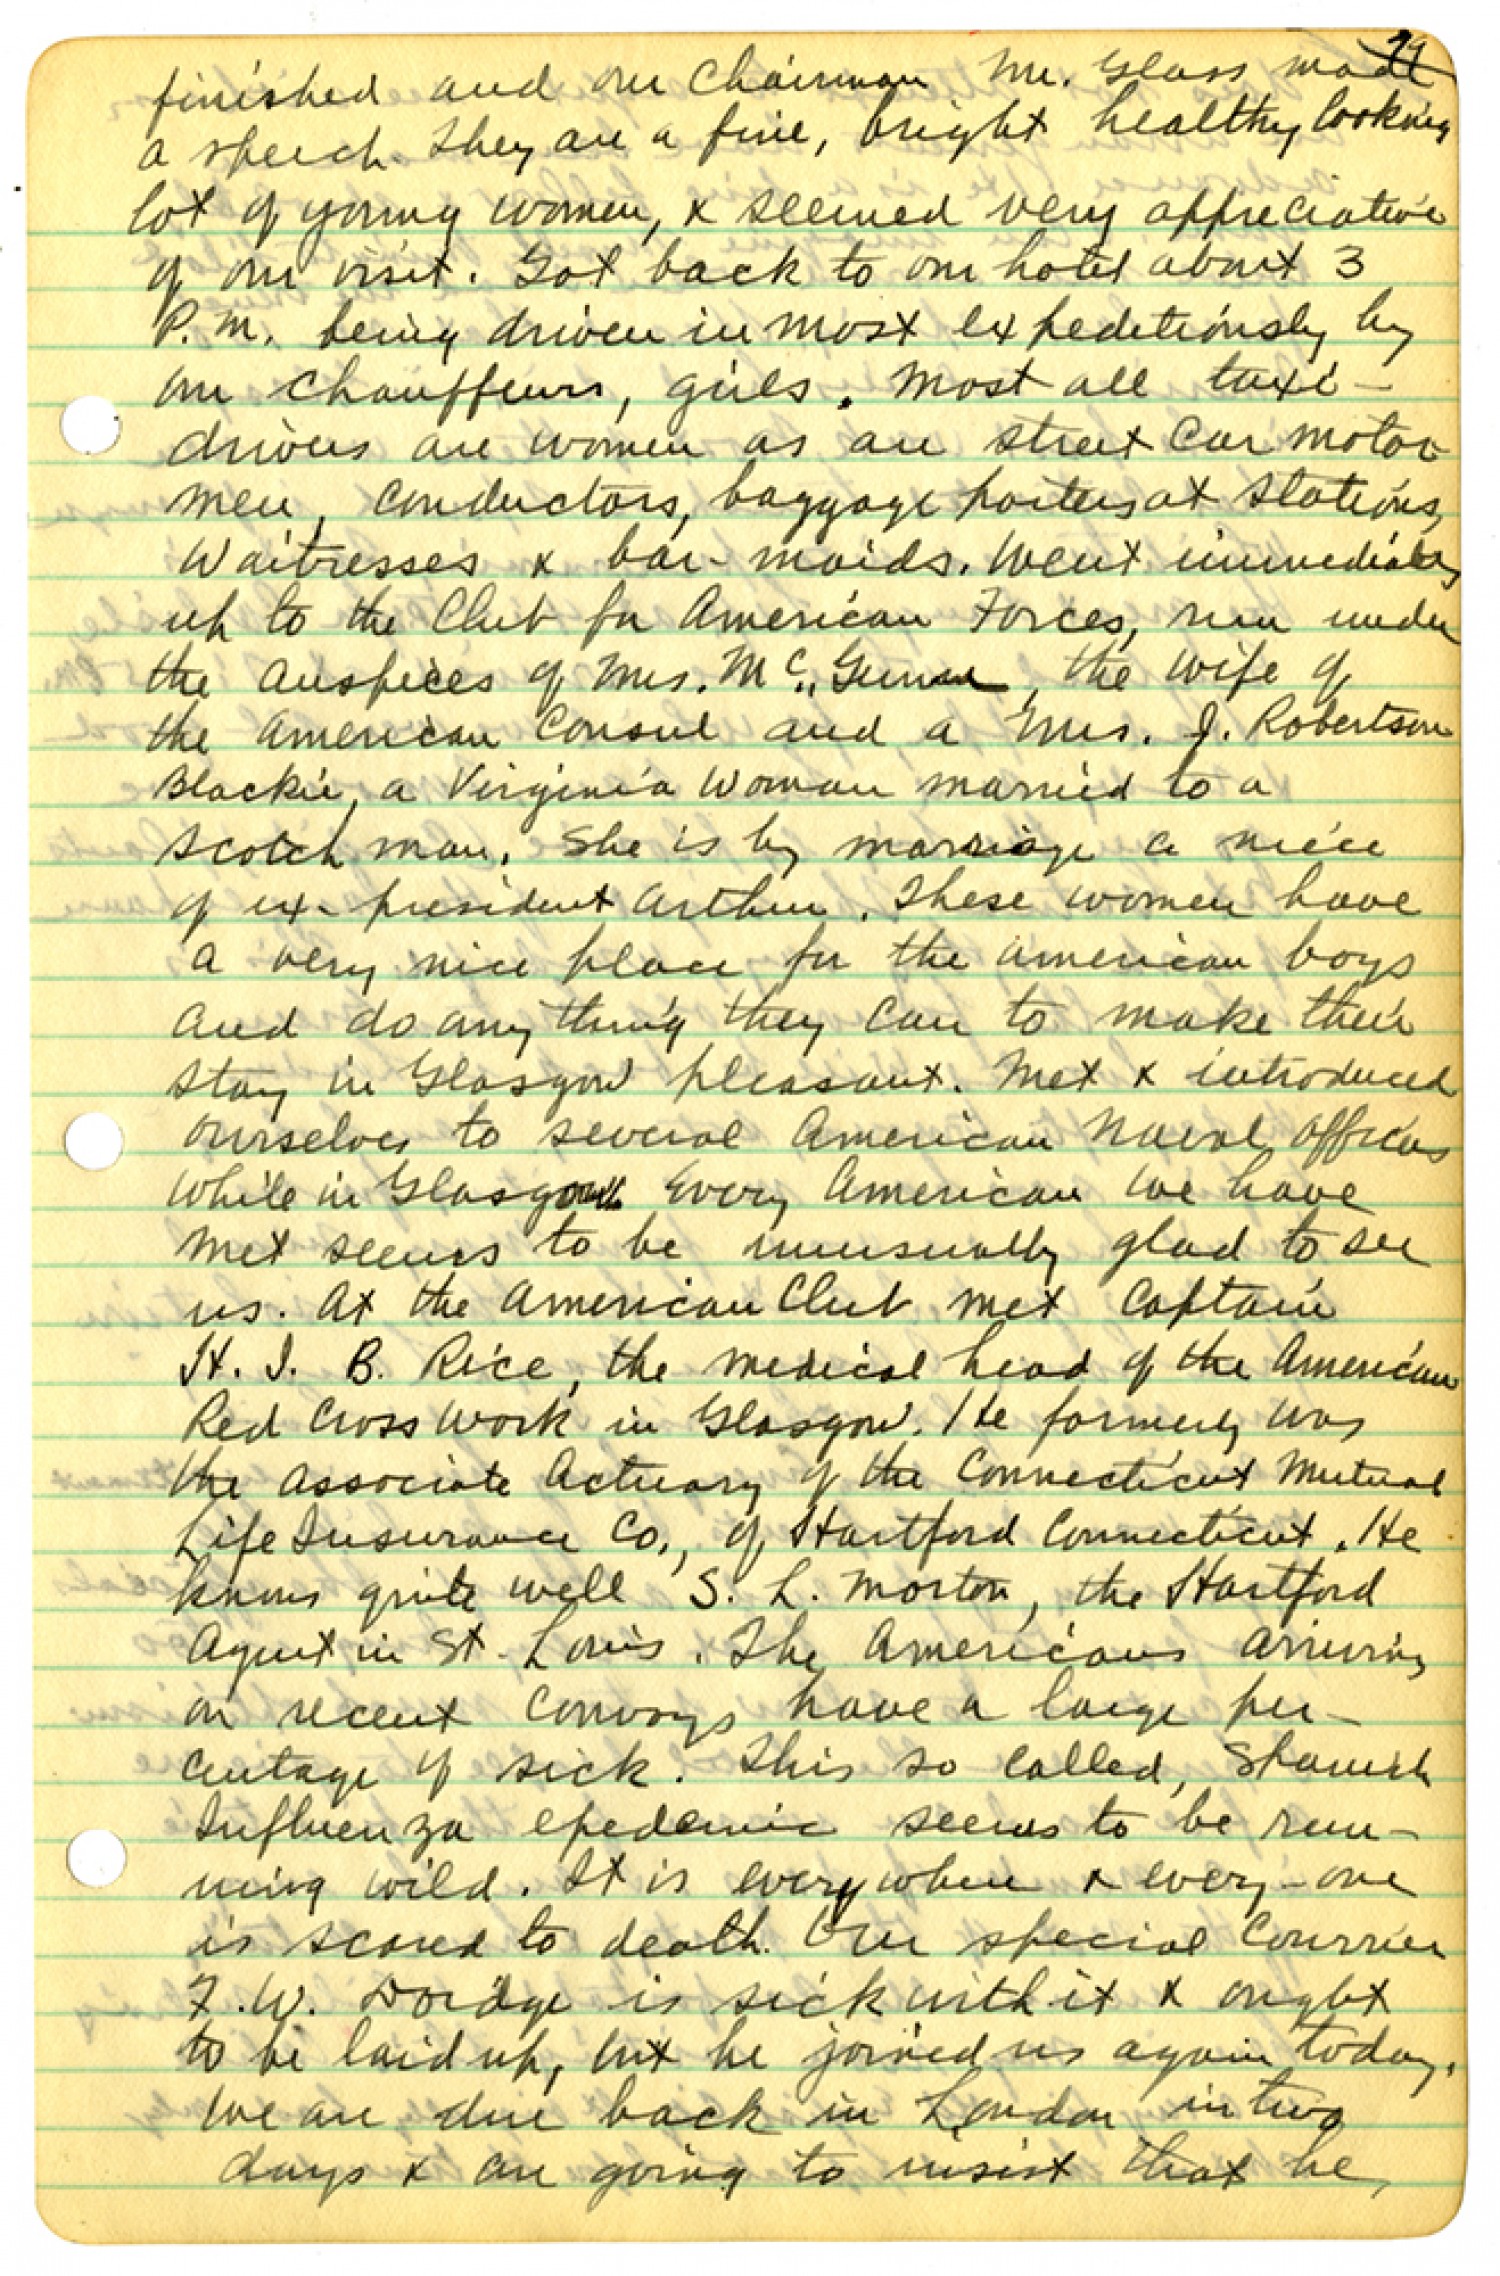 79
finished and our Chairman Mr. Glass made
a speech. They are a fine, bright healthy looking
lot of young women, & seemed very appreciative
of our visit. Got back to our hotel about 3
P.M. being driven in most expeditiously by
our Chauffeurs, girls. Most all taxi-
drivers are women as are street car motor
men, conductors, baggage porters at stations,
waitresses & bar-maids. Went immediately
up to the Club for American Forces, run under
the auspices of Mrs. Mc., Gunn, the wife of
the American Consul and a Mrs. J. Robertson
Blackie, a Virginia Woman married to a
Scotch man. She is by marriage a niece
of ex-president Arthur. These women have
a very nice place for the American boys
and do any thing they can to make their
stay in Glasgow pleasant. Met & introduced
ourselves to several American Naval officers
while in Glasgow. Every American we have
met seems to be unusually glad to see
us. At the American Club met Captain
H. I. B. Rice, the medical head of the American
Red Cross work in Glasgow. He formerly was
the associate Actuary of the Connecticut Mutual
Life Insurance Co., of Hartford Connecticut. He
knows quite well S. L. Morton, the Hartford
Agent in St. Louis. The Americans arriving
on recent convoys have a large per-
centage of sick. This so called, Spanish
Influenza epedemic seems to be run-
ning wild. It is everywhere & every-one
is scared to death. Our special Courrier
F. W. Doidge is sick with it & ought
to be laid up, but he joined us again today.
We are due back in London in two
days & are going to insist that he,